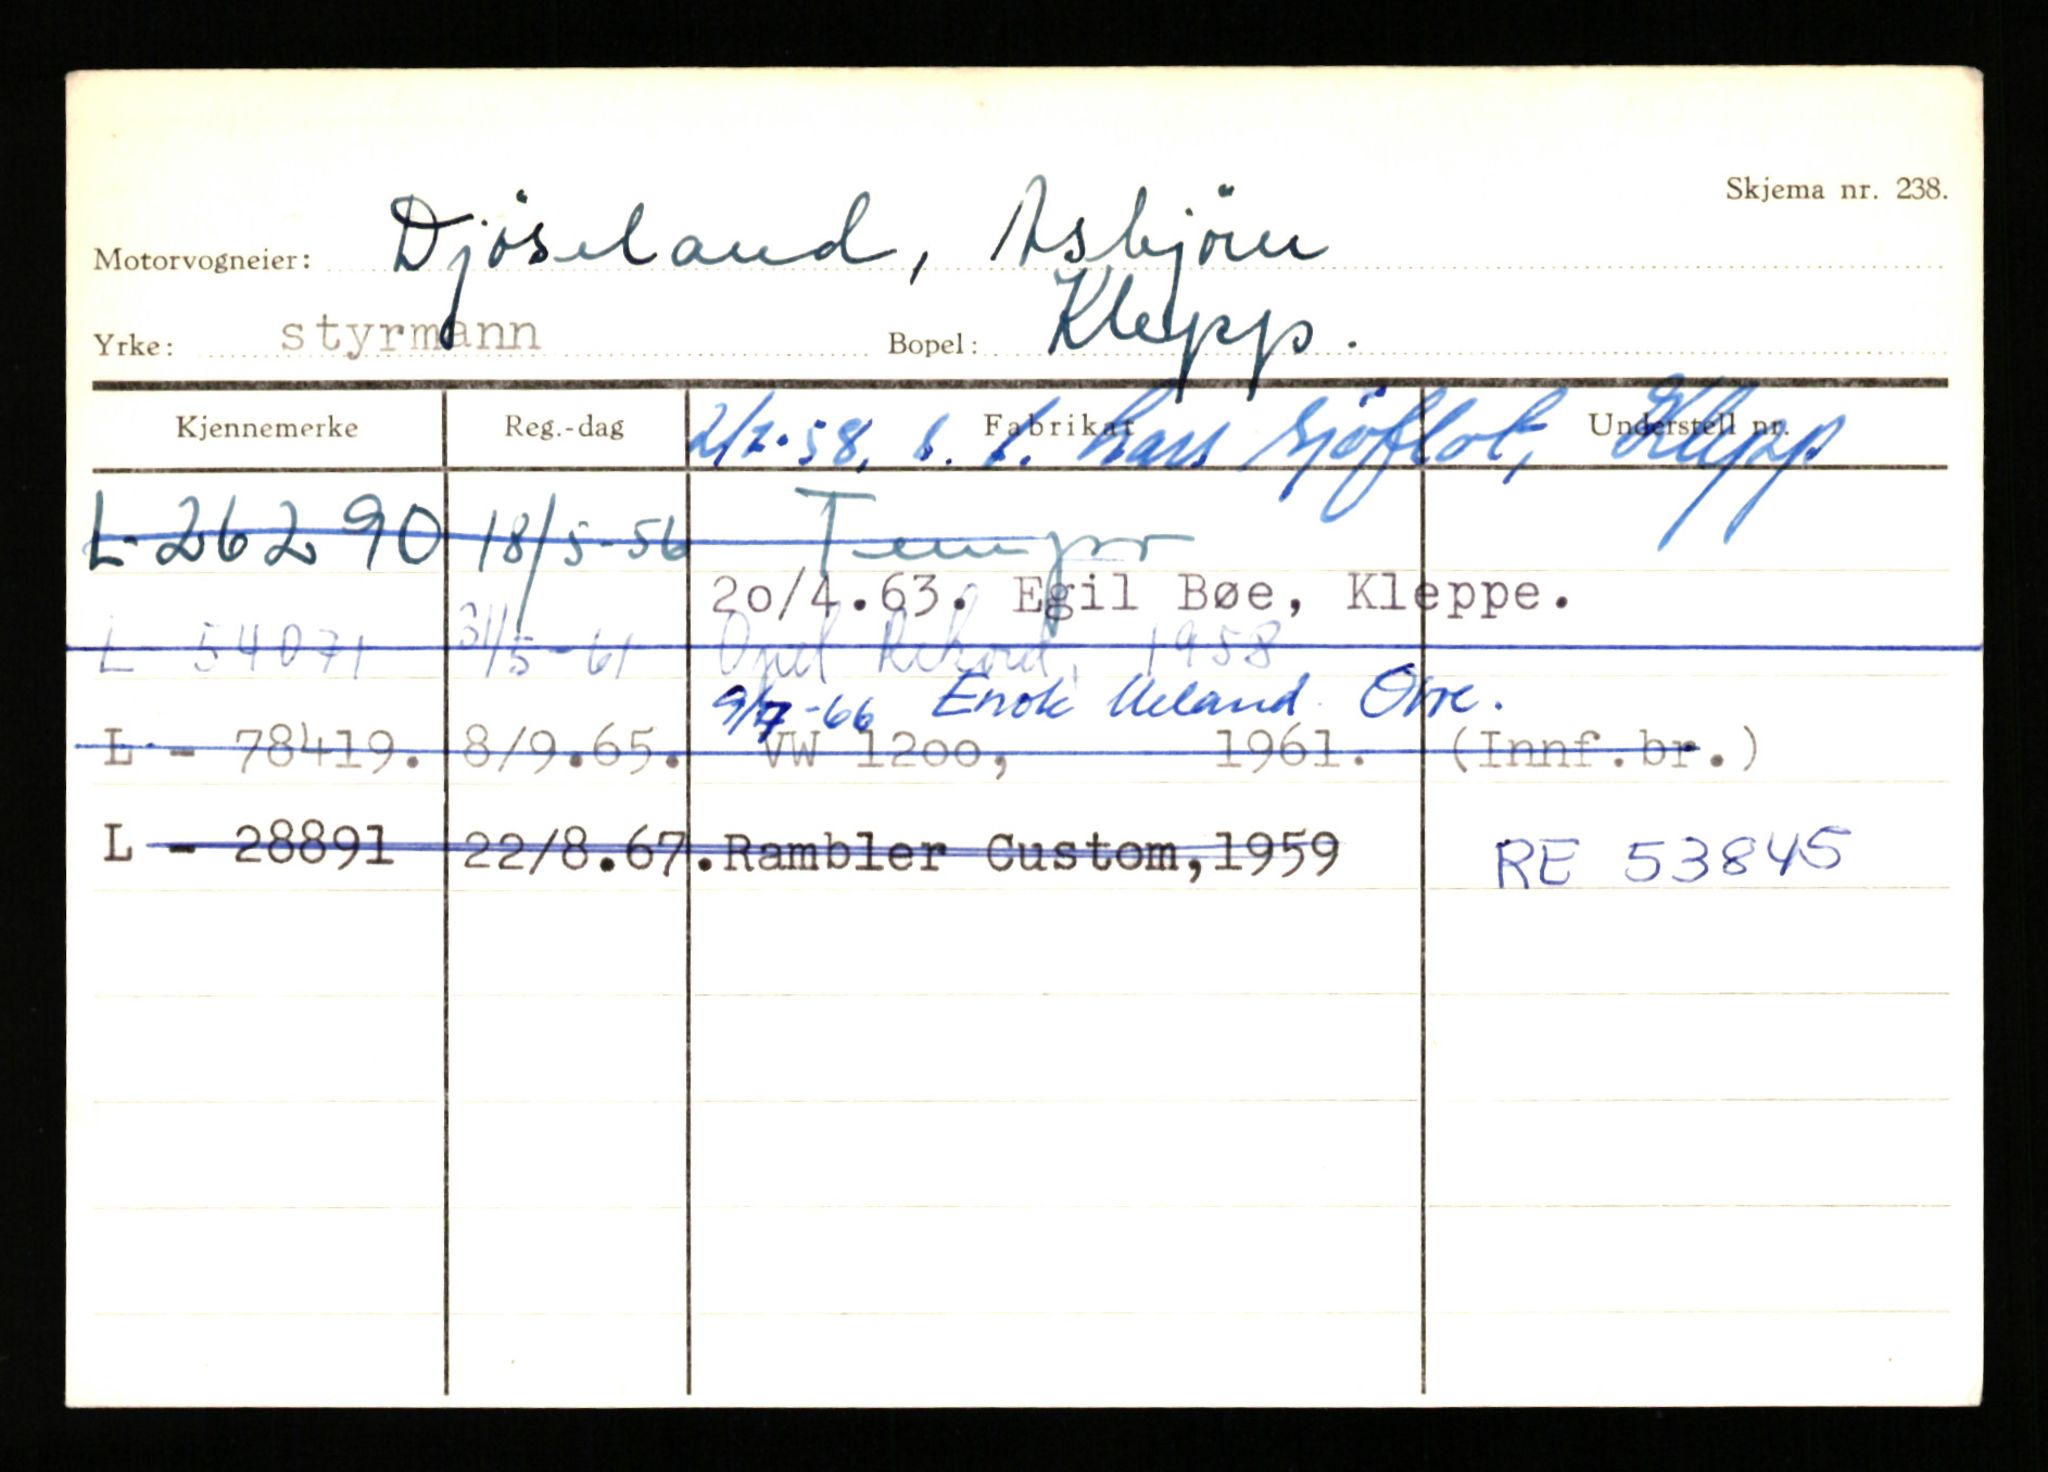 Skjema nr. 238.
Motorvogneier: Djöseland, Asbjörn
Yrke: styrmann Bopel: Klepp.
Kjennemerke Reg.-dag Fabrikat Understell nr.
2/2.58. Lars Sjöflot, Klepp
L-26290 18/5-56 Tempo
20/4.63. Egil Bøe, Kleppe.
L 54071 31/5-61 Opel Rekord, 1958
9/7-66 Enok Ueland Orre.
L - 78419. 8/9.65. VW 1200, 1961. (Innf.br.)
L - 28891 22/8.67. Rambler Custom, 1959 RE 53845